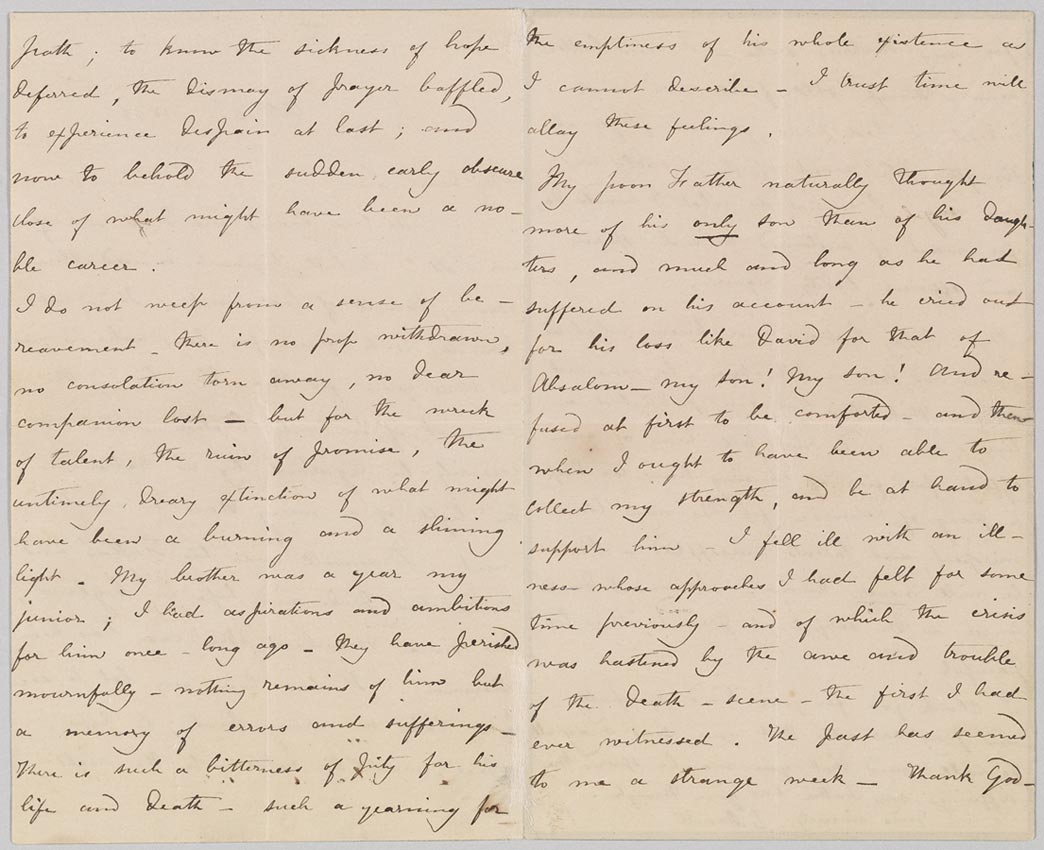 path; to know the sickness of hope
deferred, the dismay of prayer baffled,
to experience despair at last; and
now to behold the sudden, early obscure
close of what might have been a no-
ble career.
I do not weep from a sense of be-
reavement - there is no prop withdrawn,
no consolation torn away, no dear
companion lost - but for the wreck
of talent, the ruin of promise, the
untimely, dreary extinction of what might
have been a burning and a shining
light. My brother was a year my
junior; I had aspirations and ambitions
for him once - long ago - they have perished
mournfully - nothing remains of him but
a memory of errors and sufferings -
There is such a bitterness of pity for his
life and death - such a yearning for
the emptiness of his whole existence as
I cannot describe - I trust time will
allay these feelings.
My poor Father naturally thought
more of his only son than of his daugh-
ters, and much and long as he had
suffered on his account - he cried out
for his loss like David for that of
Absalom - my son! My son! And re-
fused at first to be comforted - and then
when I ought to have been able to
collect my strength, and be at hand to
support him - I fell ill with an ill-
ness whose approaches I had felt for some
time previously - and of which the crisis
was hastened by the awe and trouble
of the death-scene - the first I had
ever witnessed. The past has seemed
to me a strange week - Thank God -